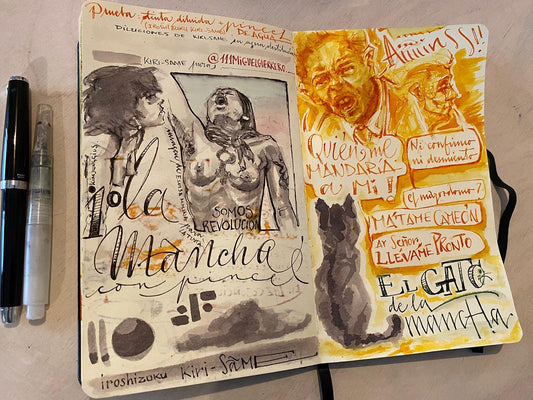 Prueba: tinta diluida pincel
(IROSHIZUKU KIRI-SAME) DE AGUA
DILUCIONES DE KIRI-SAME en agua destilada
KIRI-SAME pura
@111MIGUELGUERRERO
SOMOS
REVOLUCIÓN
¡ola
Mancha
con pincel
iroshizuku Kiri-SAME
Aiiiinsss!!
Quién me
MANDARÍA
a Mi!
Ni confirmo
ni desmiento
el mayordomo?
MÁTAME CAMEÓN
Ay Señor
LLÉVAME PRONTO
EL GATO
de la
mancha